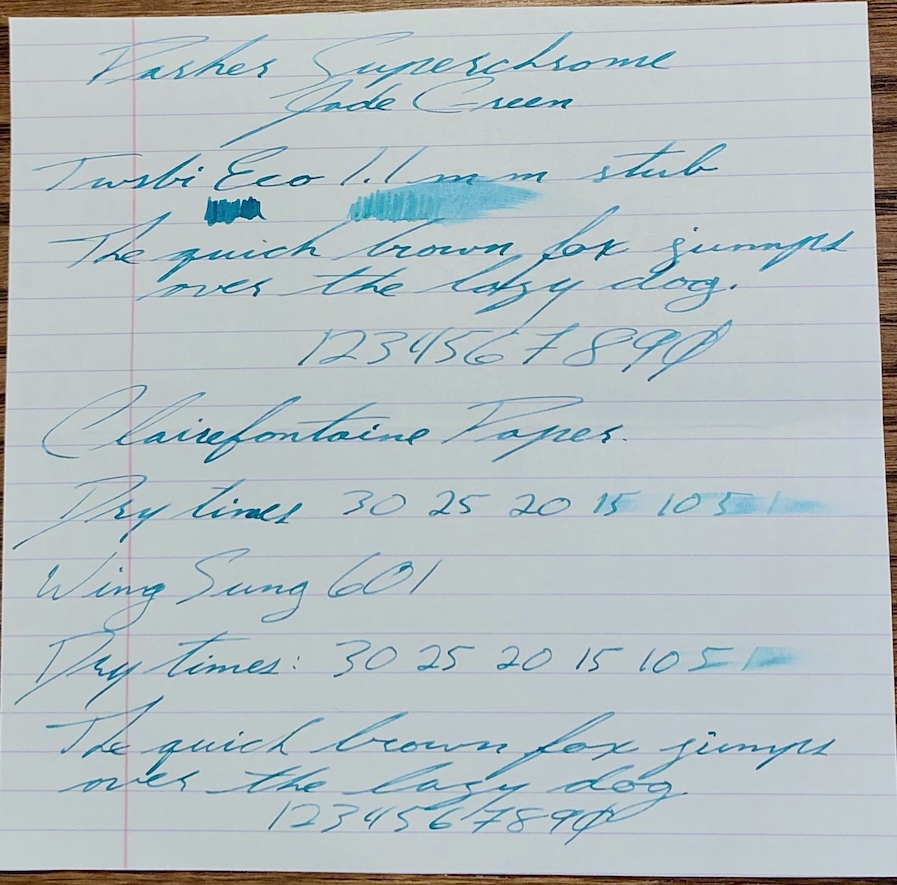 Parker Superchrome
Jade Green
Twsbi Eco 1.1 mm stub
The quick brown fox jumps
over the lazy dog.
1234567890
Clairefontaine Paper.
Dry times 30 25 20 15 10 5 1
Wing Sung 601
Dry times: 30 25 20 15 10 5 1
The quick brown fox jumps
over the lazy dog.
1234567890